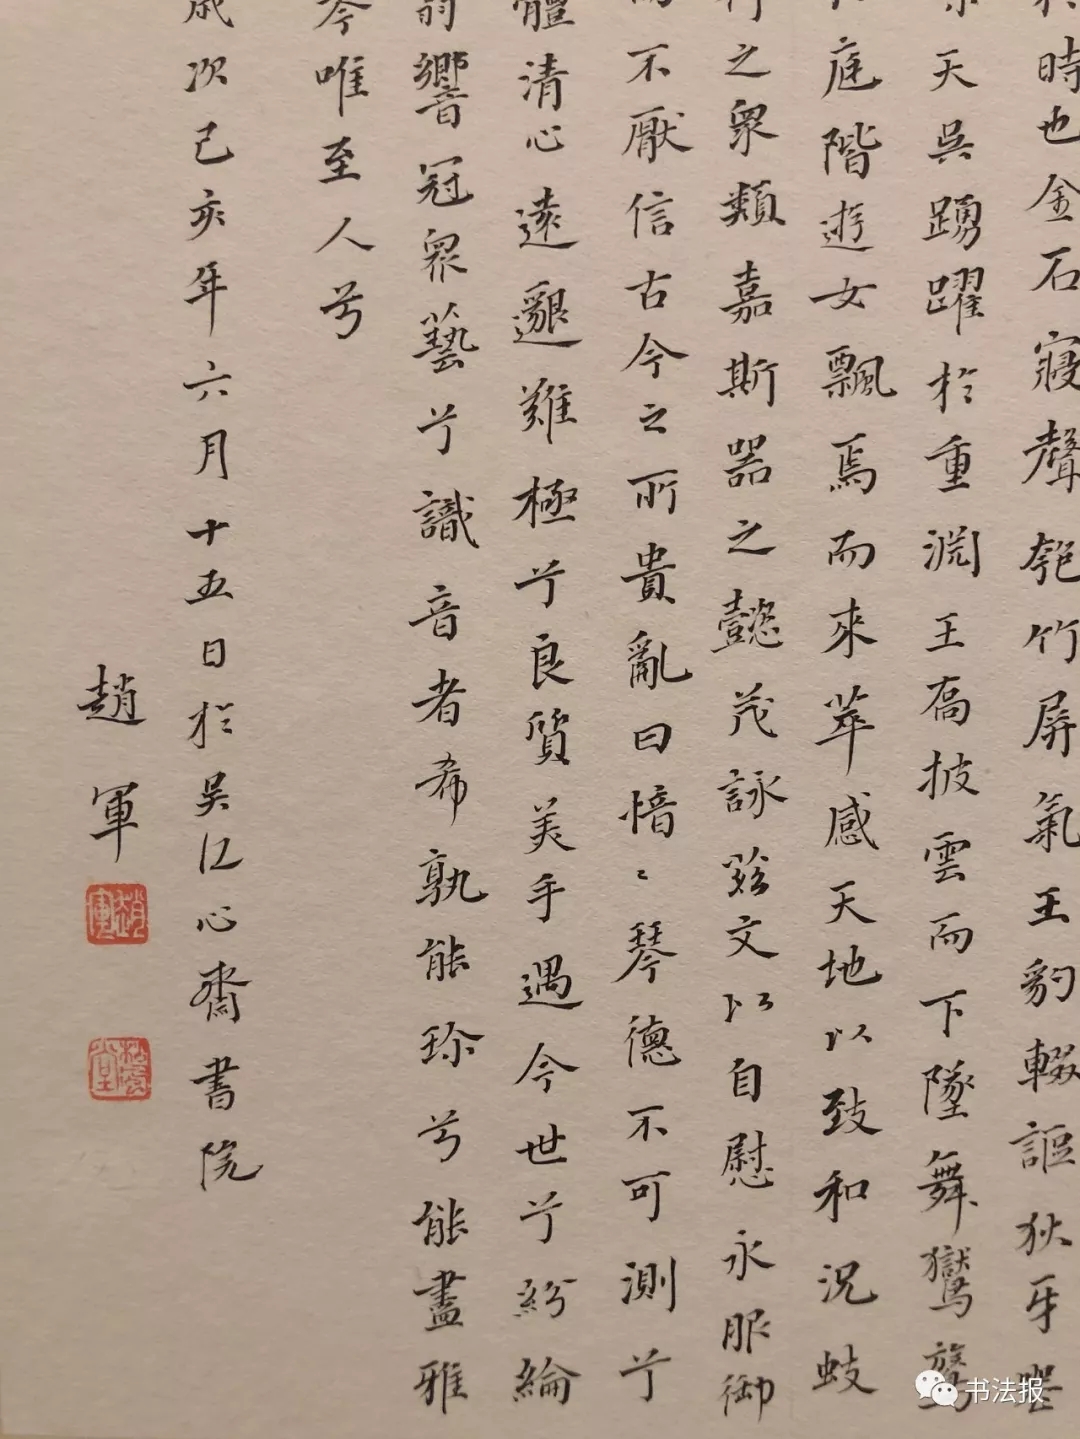 於時也金石寢聲匏竹屏氣王豹輟謳狄牙喪
天吳踴躍於重淵王喬披雲而下墜舞鸑鷟
庭階遊女飄焉而來萃感天地以致和況蚑
行之衆類嘉斯器之懿茂詠茲文以自慰永服御
而不厭信古今之所貴亂曰愔〻琴德不可測兮
體清心遠邈難極兮良質美手遇今世兮紛綸
翕響冠衆藝兮識音者希孰能珍兮能盡雅
琴唯至人兮
歲次己亥年六月十五日於吴江心齋書院
趙軍
趙軍
堂
书法报